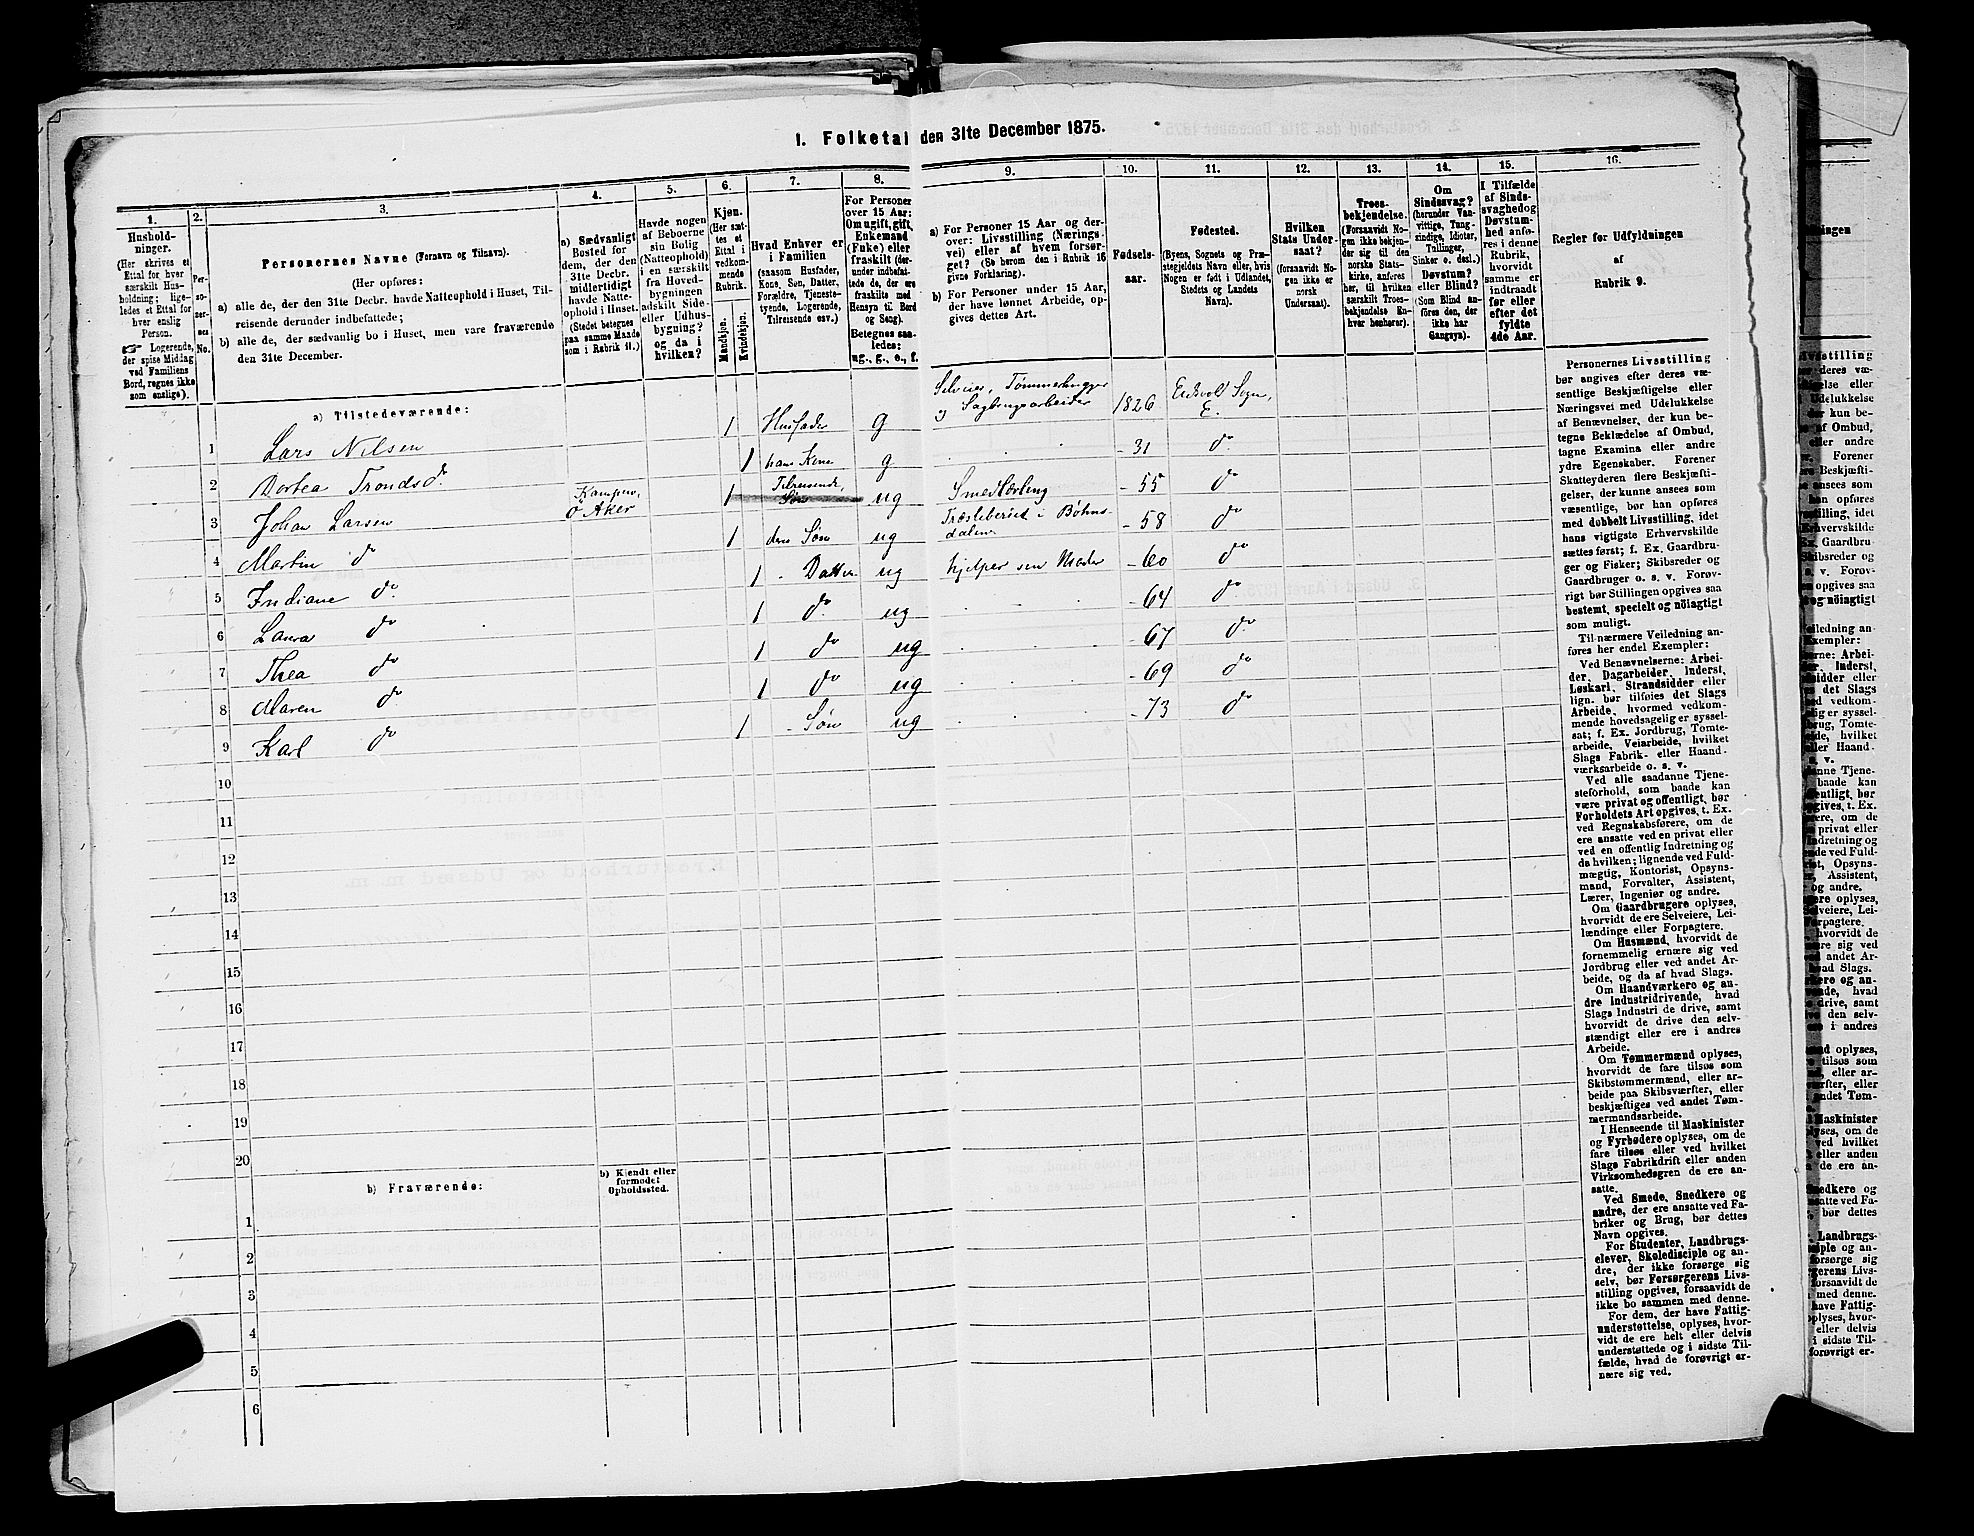 1. Folketal den 31te December 1875.
1.
Hushold-
ninger.
(Her skrives et
Ettal for hver
særskilt Hus-
holdning; lige-
ledes et Ettal for
hver enslig
Person.
☞ Logerende,
der spise Middag
ved Familiens
Bord, regnes ikke
som enslige).
2.
Per-
so-
ner-
nes
No.
3.
Personernes Navne (Fornavn og Tilnavn).
(Her opføres:
a) alle de, der den 31te Decbr. havde Natteophold i Huset, Til-
reisende derunder indbefattede;
b) alle de, der sædvanlig bo i Huset, men vare fraværende
den 31te December.
4.
a) Sædvanligt
Bosted for
dem, der den
31te Decbr.
midlertidigt
havde Natte-
ophold i Huset.
(Stedet betegnes
paa samme Maade
som i Rubrik 11.)
5.
Havde nogen
af Beboerne
sin Bolig
(Natteophold)
i en særskilt
fra Hoved-
bygningen
adskilt Side-
eller Udhus-
bygning?
og da i
hvilken?
6.
Kjøn.
(Her sæt-
tes et
Ettal i
vedkom-
mende
Rubrik.
Mandkjøn.
Kvindekjøn.
7.
Hvad Enhver er
i Familien
(saasom Husfader,
Kone, Søn, Datter,
Forældre, Tjeneste-
tyende, Logerende,
Tilreisende osv.)
8.
For Personer
over 15 Aar:
Om ugift, gift,
Enkemand
(Enke) eller
fraskilt (der-
under indbefat-
tede de, der ere
fraskilte med
Hensyn til Bord
og Seng).
Betegnes saa-
ledes:
ug., g., e., f.
9.
a) For Personer 15 Aar og der-
over: Livsstilling (Nærings-
vei) eller af hvem forsør-
get? (Se herom den i Rubrik 16
givne Forklaring).
b) For Personer under 15 Aar,
der have lønnet Arbeide, op-
gives dettes Art.
10.
Fødsels-
aar.
11.
Fødested.
(Byens, Sognets og Præ-
stegjeldets Navn eller, hvis
Nogen er født i Udlandet,
Stedets og Landets
Navn).
12.
Hvilken
Stats Under-
saat?
(forsaavidt No-
gen ikke er
norsk
Undersaat).
13.
Troes-
bekjendelse.
(Forsaavidt No-
gen ikke bekjen-
der sig til den
norske Stats-
kirke, anføres
her, til hvilken
særskilt Troes-
bekjendelse En-
hver henhører).
14.
Om
Sindssvag?
(herunder Van-
vittige, Tung-
sindige, Idioter,
Tullinger,
Sinker o. desl.)
Døvstum?
eller Blind?
(Som Blind an-
føres den, der
ikke har
Gangsyn).
15.
I Tilfælde
af Sinds-
svaghed og
Døvstum-
hed anfø-
res i denne
Rubrik,
hvorvidt
samme er
indtraadt
før eller
efter det
fyldte
4de Aar.
16.
Regler før Udfyldningen
af
Rubrik 9.
a) Tilstedeværende:
1 Lars Nilsen 1 Husfader g Selveier, Tømmerhugger
og Sagbrugsarbeider 1826 Eidsvold Sogn,
E.
2 Dortea Trondsd. 1 hans Kone g - 31 do
3 Johan Larsen 1 Tilreisende,
Søn ug Smedlærling - 55 do
Aker
4 Martin do 1 deres Søn ug i Bøhns-
dalen - 58 do
5 Indiane do 1 - Datter ug hjelper sin Moder - 60 do
6 Laura do 1 do ug - 64 do
7 Thea do 1 do ug - 67 do
8 Maren do 1 do ug - 69 do
9 Karl do 1 - Søn ug - 73 do
10
11
12
13
14
15
16
17
18
19
20
b) Fraværende:
b) Kjendt eller
formodet
Opholdssted.
1
2
3
4
5
6
Personernes Livsstilling
bør angives efter deres væ-
sentlige Beskjæftigelse eller
Næringsvei med Udelukkelse
af Benævnelser, der kun be-
tegne Beklædelse af Ombud,
tagne Examina eller andre
ydre Egenskaber. Forener
Skatteyderen flere Beskjæfti-
gelser, der kunne ansees som
væsentlige, bør han opføres
med dobbelt Livsstilling, idet
hans vigtigste Erhvervskilde
sættes først; f. Ex. Gaardbru-
ger og Fisker; Skibsreder og
Gaardbruger o. s. v. Forøv-
rigt bør Stillingen opgives saa
bestemt, specielt og nöiagtigt
som muligt.
Til nærmere Veiledning an-
føres her endel Exempler:
Ved Benævnelserne: Arbei-
der, Dagarbeider, Inderst,
Løskarl, Strandsidder eller
lign. bør tilføies det Slags
Arbeide, hvormed vedkom-
mende hovedsagelig er syssel-
sat; f. Ex. Jordbrug, Tomte-
arbeide, Veiarbeide, hvilket
Slags Fabrik- eller Haand-
værksarbeide o. s. v.
Ved alle saadanne Tjene-
steforhold, som baade kan
være privat og offentligt, bør
Forholdets Art opgives, t. Ex.
ved Regnskabsførere, om de
ere ansatte ved en privat eller
ved en offentlig Indretning og
da hvilken; lignende ved Fuld-
mægtig, Kontorist, Opsyns-
mand, Forvalter, Assistent,
Lærer, Ingeniør og andre.
Om Gaardbrugere oplyses,
hvorvidt de ere Selveiere, Lei-
lændinge eller Forpagtere.
Om Husmænd, hvorvidt de
fornemmelig ernære sig ved
Jordbrug eller ved andet Ar-
beide, og da af hvad Slags.
Om Haandværkere og an-
dre Industridrivende, hvad
Slags Industri de drive, samt
hvorvidt de drive den selv-
stændigt eller ere i andres
Arbeide.
Om Tømmermænd oplyses,
hvorvidt de fare tilsøs som
Skibstømmermænd, eller ar-
beide paa Skibsværfter, eller
beskjæftiges ved andet Tøm-
mermandsarbeide.
I Henseende til Maskinister
og Fyrbødere oplyses, om de
fare tilsøs eller ved hvilket
Slags Fabrikdrift eller anden
Virksomhedsgren de ere an-
satte.
Ved Smede, Snedkere og
andre, der ere ansatte ved Fa-
briker og Brug, bør dettes
Navn opgives.
For Studenter, Landbrugs-
elever, Skoledisciple og an-
dre, der ikke forsørge sig
selv, bør Forsørgerens Livs-
stilling opgives, forsaavidt de
ikke bo sammen med denne.
For dem, der have Fattig-
understøttelse, oplyses, hvor-
vidt de ere helt eller delvis
understøttede og i sidste Til-
fælde, hvad de forøvrigt er-
nære sig ved.